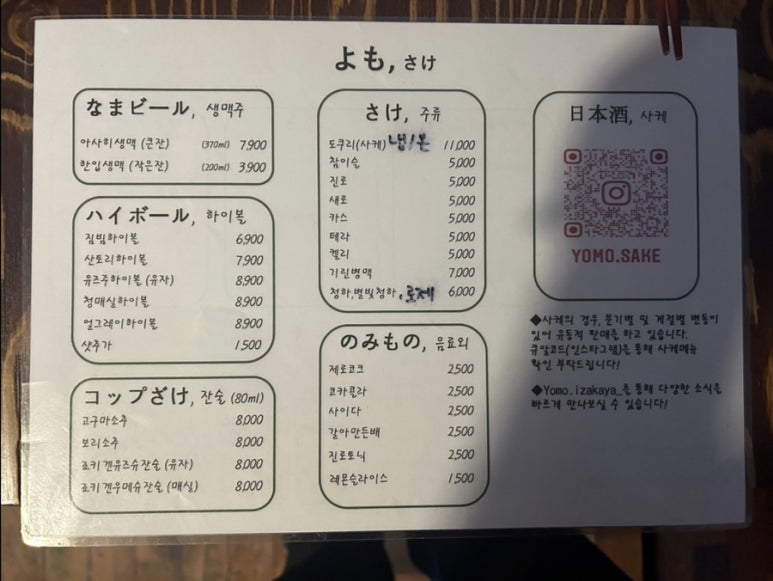 よも, さけ
なまビール, 생맥주
아사히생맥 (큰잔) (370ml) 7,900
한입생맥 (작은잔) (200ml) 3,900
ハイボール, 하이볼
짐빔하이볼 6,900
산토리하이볼 7,900
유즈주하이볼 (유자) 8,900
청매실하이볼 8,900
얼그레이하이볼 8,900
샷추가 1,500
コップざけ, 잔술 (80ml)
고구마소주 8,000
보리소주 8,000
죠키겐유즈슈잔술 (유자) 8,000
죠키겐우메슈잔술 (매실) 8,000
さけ, 주류
도쿠리(사케) 냉/온 11,000
참이슬 5,000
진로 5,000
새로 5,000
카스 5,000
테라 5,000
켈리 5,000
기린병맥 7,000
청하,별빛청하,로제 6,000
のみもの, 음료외
제로코크 2,500
코카콜라 2,500
사이다 2,500
갈아만든배 2,500
진로토닉 2,500
레몬슬라이스 1,500
日本酒, 사케
YOMO.SAKE
◆사케의 경우, 분기별 및 계절별 변동이
있어 유동적 판매를 하고 있습니다.
큐알코드(인스타그램)을 통해 사케메뉴
확인 부탁드립니다!
◆Yomo.izakaya_를 통해 다양한 소식을
빠르게 만나보실 수 있습니다!